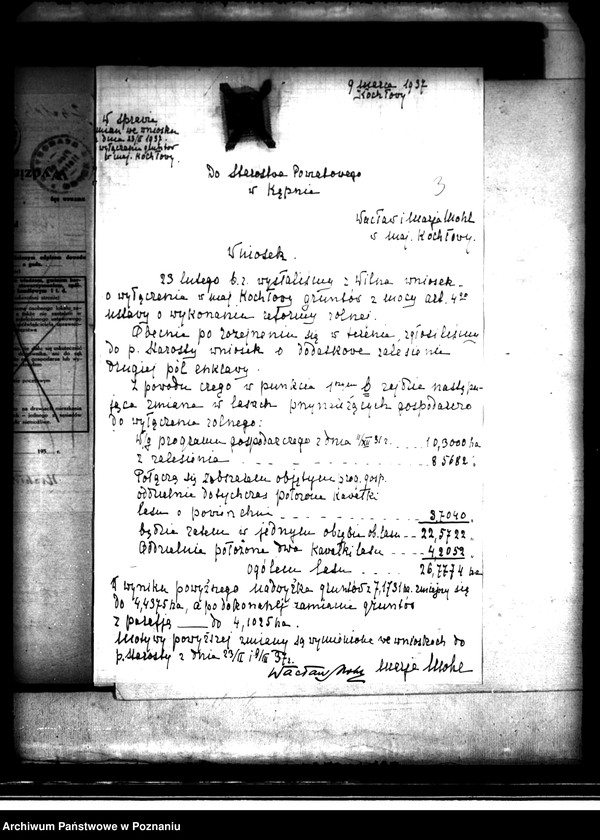 9 marca 1937
Kochłowy
W sprawie
zmian we wniosku
z dnia 23/II 1937.
o wyłączenie gruntów
w maj. Kochłowy.
Do Starostwa Powiatowego
w Kępnie
3
Wacław i Marja Mohl
w maj. Kochłowy.
Wniosek.
23 lutego b.r. wysłaliśmy z Wilna wniosek
o wyłączenia w maj. Kochłowy gruntów z mocy art. 4go
ustawy o wykonaniu reformy rolnej.
Obecnie po rozejrzeniu się w terenie, zgłosiliśmy
do p. Starosty wniosek o dodatkowe zalesienie
drugiej pół enklawy.
Z powodu czego w punkcie zajdzie nastę-
pująca zmiana w lasach przynależących gospodarczo
do wyłączenia rolnego:
Wg programu gospodarczego z dnia . . 10,3000 ha
z zalesienia . . . . . . . . 8 5682.
Połączą się z obszarem objętym prog. gosp.
oddzielnie dotychczas położone kawałki
lasu o powierzchni . . . . . . 3,7040.
będzie zatem w jednym obrębie ob. lasu . . 22,5722.
Oddzielnie położone dwa kawałki lasu . . . 4,2052.
ogółem lasu . . . . 26,7774 ha
W wyniku powyższego nadwyżka gruntów z 7,1731 ha. zmniejszy się
do 4,4375 ha, a po dokonanej zamianie gruntów
z parafją —— do 4,1025 ha.
Motywy powyższej zmiany są wymienione we wnioskach do
p. Starosty z dnia 23/II i 8/III 37 r.
Wacław Mohl Marja Mohl
Archiwum Państwowe w Poznaniu